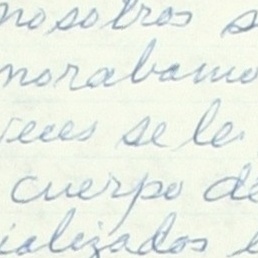 nosotros s
norabamo
veces se le
cuerpo de
ializados e